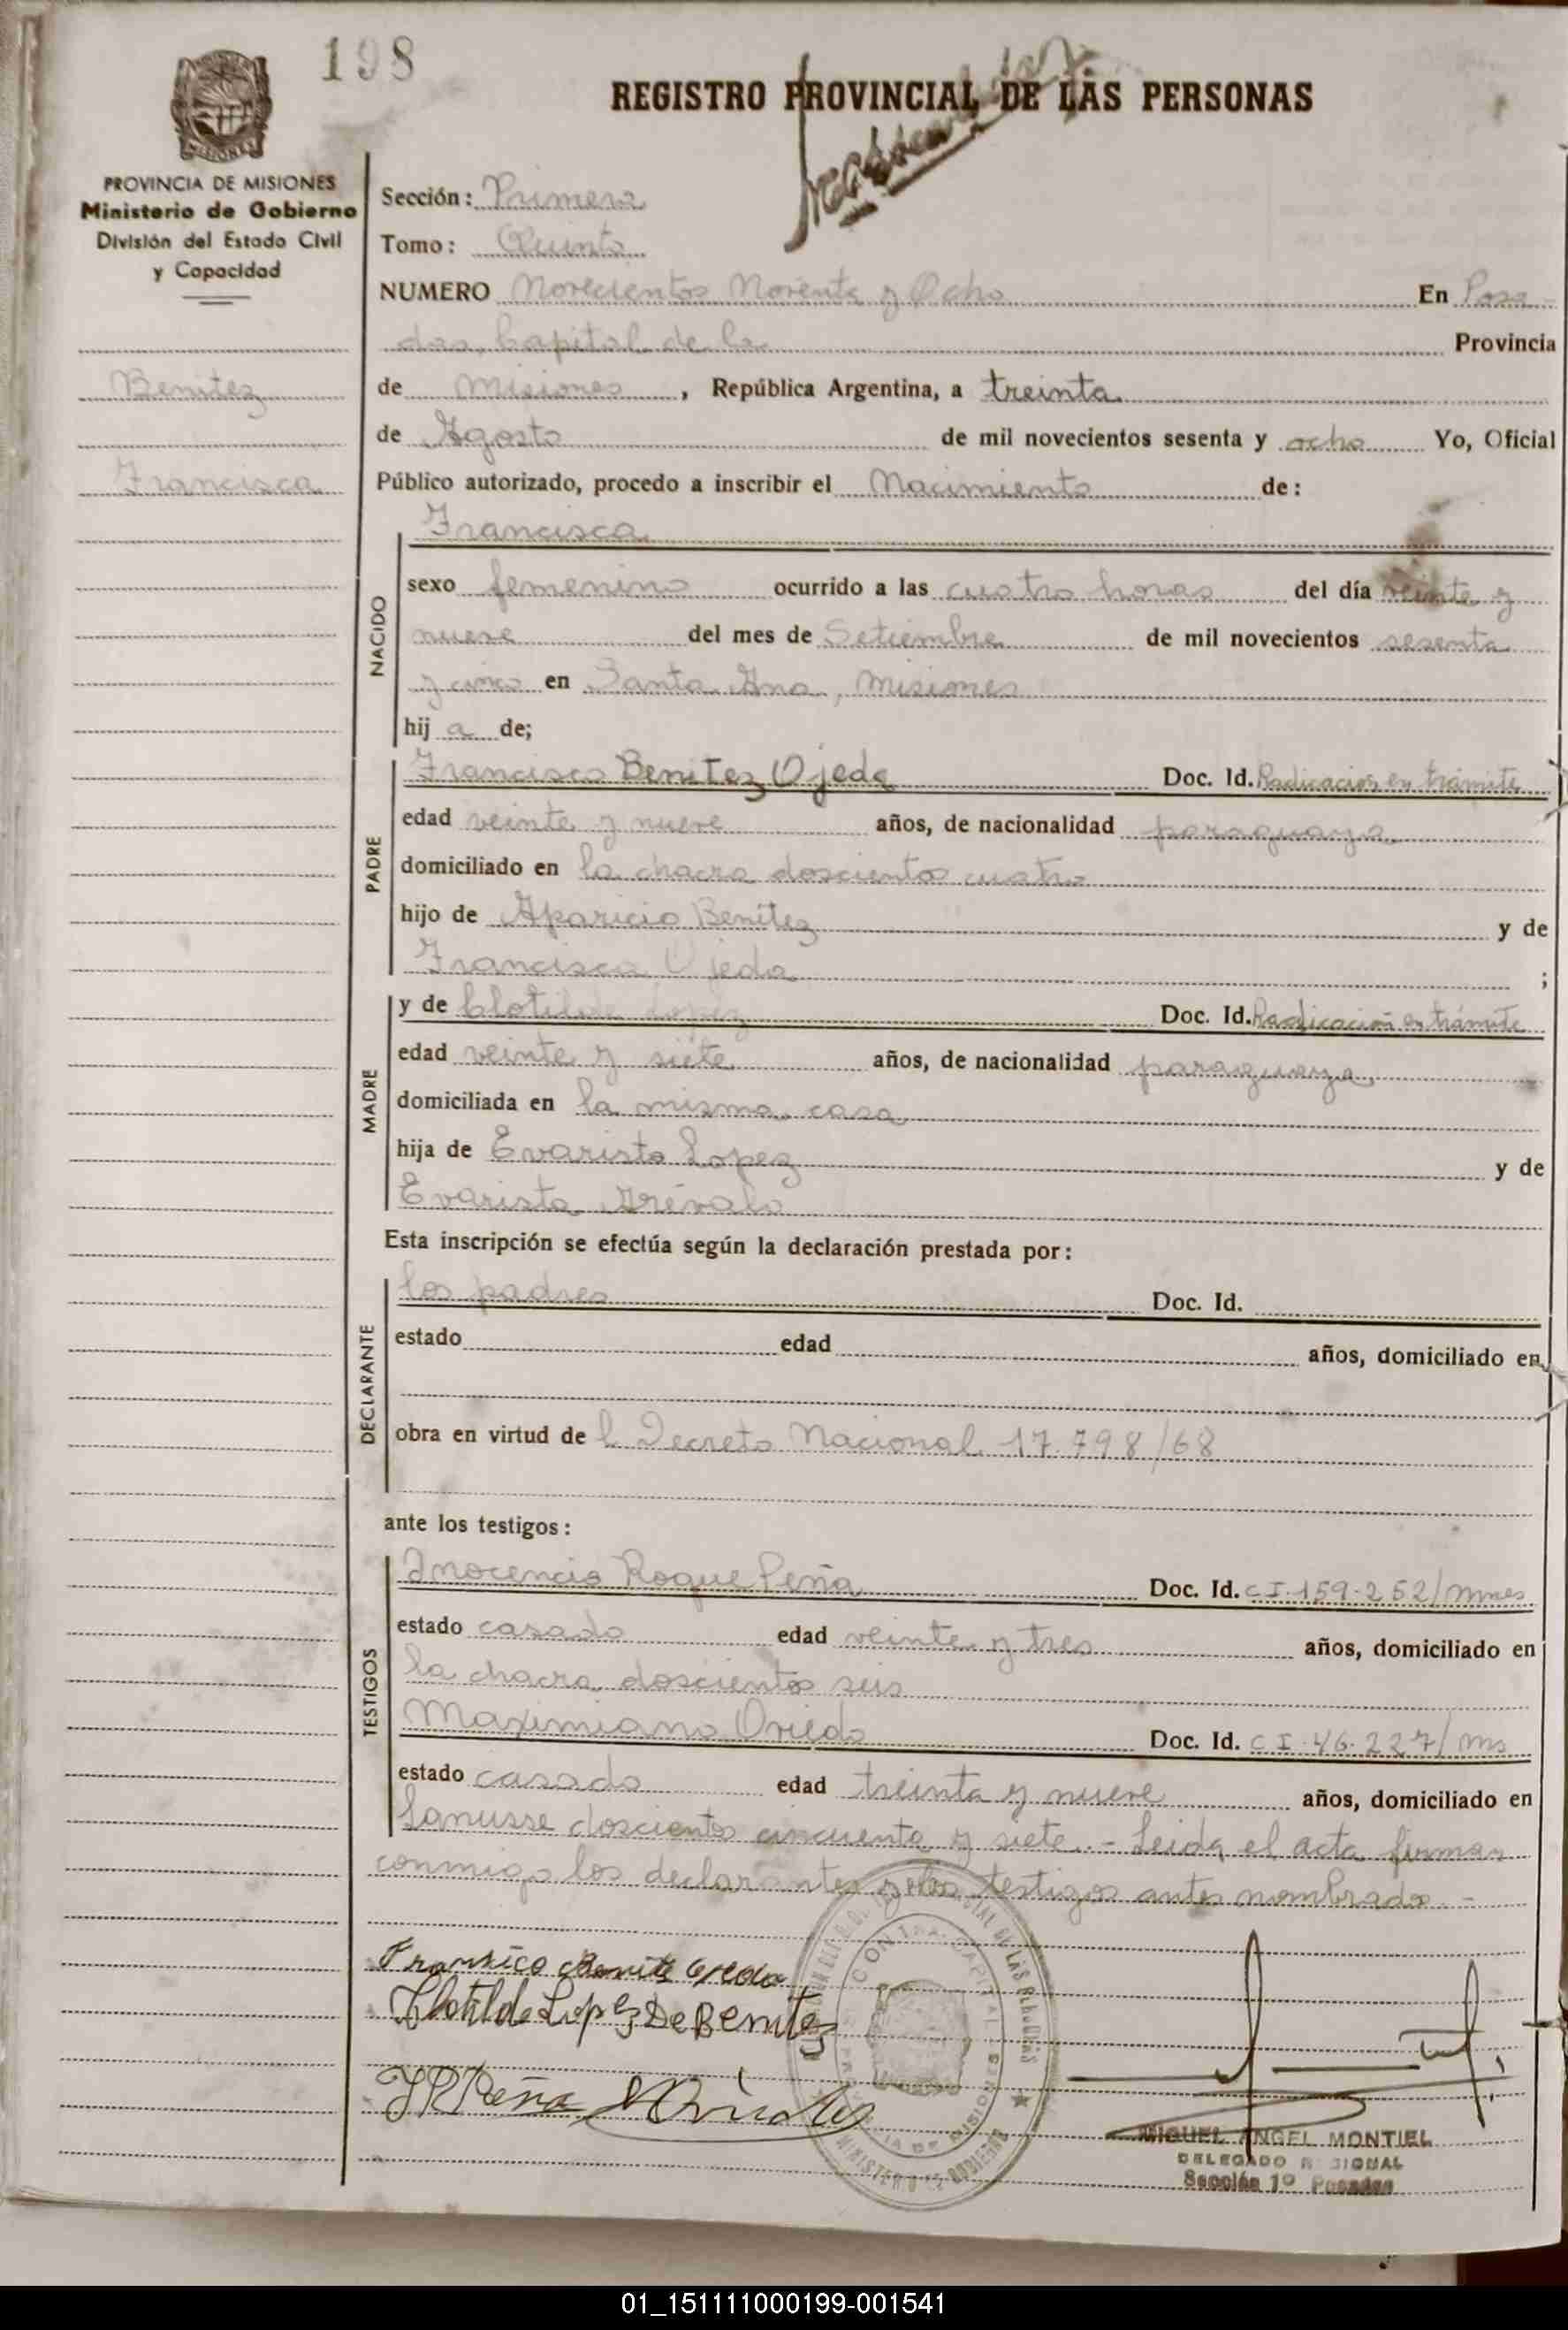 198
REGISTRO PROVINCIAL DE LAS PERSONAS
MISIONES
PROVINCIA DE MISIONES
Ministerio de Gobierno
División del Estado Civil
y Capacidad
Benitez
Francisca
Sección: Primera
Tomo: Quinto
NUMERO Novecientos Noventa y Ocho En Posa-
das, Capital de la Provincia
de Misiones, República Argentina, a treinta
de Agosto de mil novecientos sesenta y ocho Yo, Oficial
Público autorizado, procedo a inscribir el Nacimiento de:
NACIDO
Francisca
sexo femenino ocurrido a las cuatro horas del día veinte y
nueve del mes de Setiembre de mil novecientos sesenta
y cinco en Santa Ana, Misiones
hij a de;
PADRE
Francisco Benitez Ojeda Doc. Id. Radicacion en trámite
edad veinte y nueve años, de nacionalidad paraguaya
domiciliado en la chacra doscientos cuatro
hijo de Aparicio Benitez y de
Francisca Ojeda ;
MADRE
y de Clotilde Lopez Doc. Id. Radicación en trámite
edad veinte y siete años, de nacionalidad paraguaya
domiciliada en la misma casa
hija de Evaristo Lopez y de
Evarista Arévalo
Esta inscripción se efectúa según la declaración prestada por:
DECLARANTE
los padres Doc. Id.
estado edad años, domiciliado en
obra en virtud de l Decreto Nacional 17.798/68
ante los testigos:
TESTIGOS
Inocencio Roque Peña Doc. Id. C I. 159-252/Mnes
estado casado edad veinte y tres años, domiciliado en
la chacra doscientos seis
Maximiano Oviedo Doc. Id. C I. 46.227/Ms
estado casado edad treinta y nueve años, domiciliado en
Lanusse doscientos cincuenta y siete.- Leida el acta firman
conmigo los declarantes y los testigos antes nombrado.-
Clotilde Lopez De Benitez
MIGUEL ANGEL MONTIEL
DELEGADO REGIONAL
Sección 1º Posadas
01_151111000199-001541